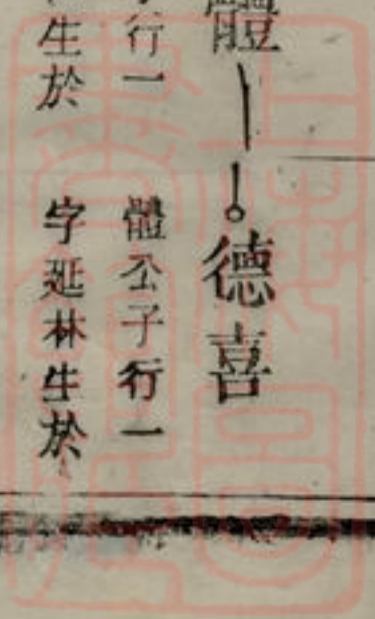 體德喜
行一
體公子行一
生於
字林生於